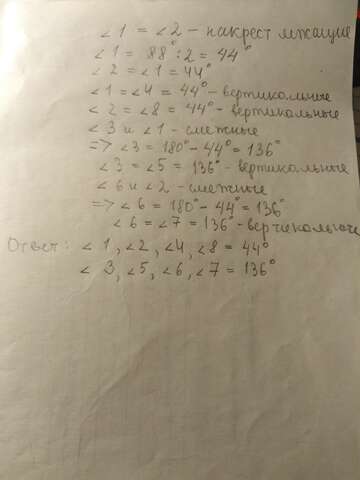 ∠1 = ∠2 - накрест лежащие
∠1 = 88° : 2 = 44°
∠2 = ∠1 = 44°
∠1 = ∠4 = 44° - вертикольные
∠2 = ∠8 = 44° - вертикольные
∠3 и ∠1 - смежные
=> ∠3 = 180° - 44° = 136°
∠3 = ∠5 = 136° - вертикольные
∠6 и ∠2 - смежные
=> ∠6 = 180° - 44° = 136°
∠6 = ∠7 = 136° - вертикольные
Ответ: ∠1, ∠2, ∠4, ∠8 = 44°
∠3, ∠5, ∠6, ∠7 = 136°